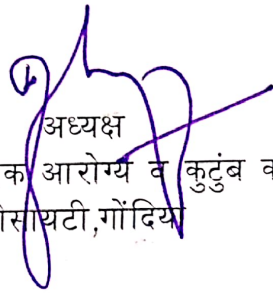 अध्यक्ष
क आरोग्य व कुटुंब क
सोसायटी,गोंदिया